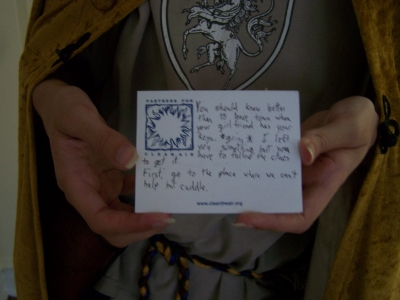 PARTNERS FOR
CLEAN AIR
You should know better
than to leave town when
your girlfriend has your
keys. *grin* I left
you something but you
have to follow the clues
to get it.
First, go to the place where we can't
help but cuddle.
www.cleantheair.org